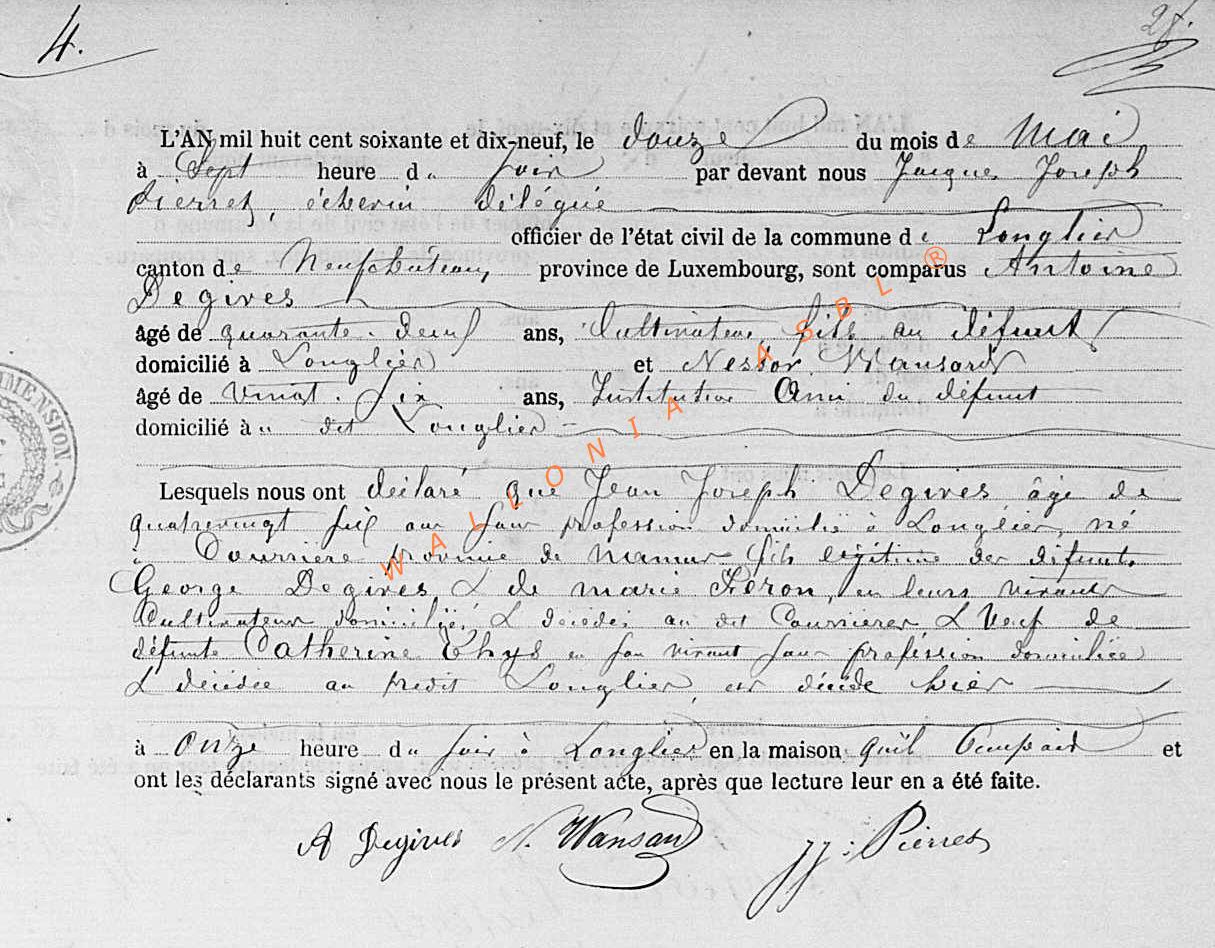 4.
27.
L'AN mil huit cent soixante et dix-neuf, le douze du mois de Mai
à Sept heure du soir par devant nous Jacques Joseph
Pierret, échevin délégué
officier de l'état civil de la commune de Longlier
canton de Neufchâteau, province de Luxembourg, sont comparus Antoine
Degives
âgé de quarante-deux ans, Cultivateur, fils au défunt
domicilié à Longlier et Nestor Wansard
âgé de vingt-six ans, Instituteur Ami du défunt
domicilié à dit Longlier
Lesquels nous ont déclaré que Jean Joseph Degives âgé de
quatrevingt six ans sans profession domicilié à Longlier, né
à Courrière province de Namur fils légitime des défunts
George Degives & de marie Féron, en leurs vivants
Cultivateurs domiciliés & décédés au dit Courrière & Veuf de
défunte Catherine Thys en son vivant sans profession domiciliée
& décédée au prédit Longlier, est décédé hier
à onze heure du soir à Longlier en la maison qu'il occupait et
ont les déclarants signé avec nous le présent acte, après que lecture leur en a été faite.
A Degives N. Wansard JJ. Pierret
MENSION
WALLONIA ASBL ®